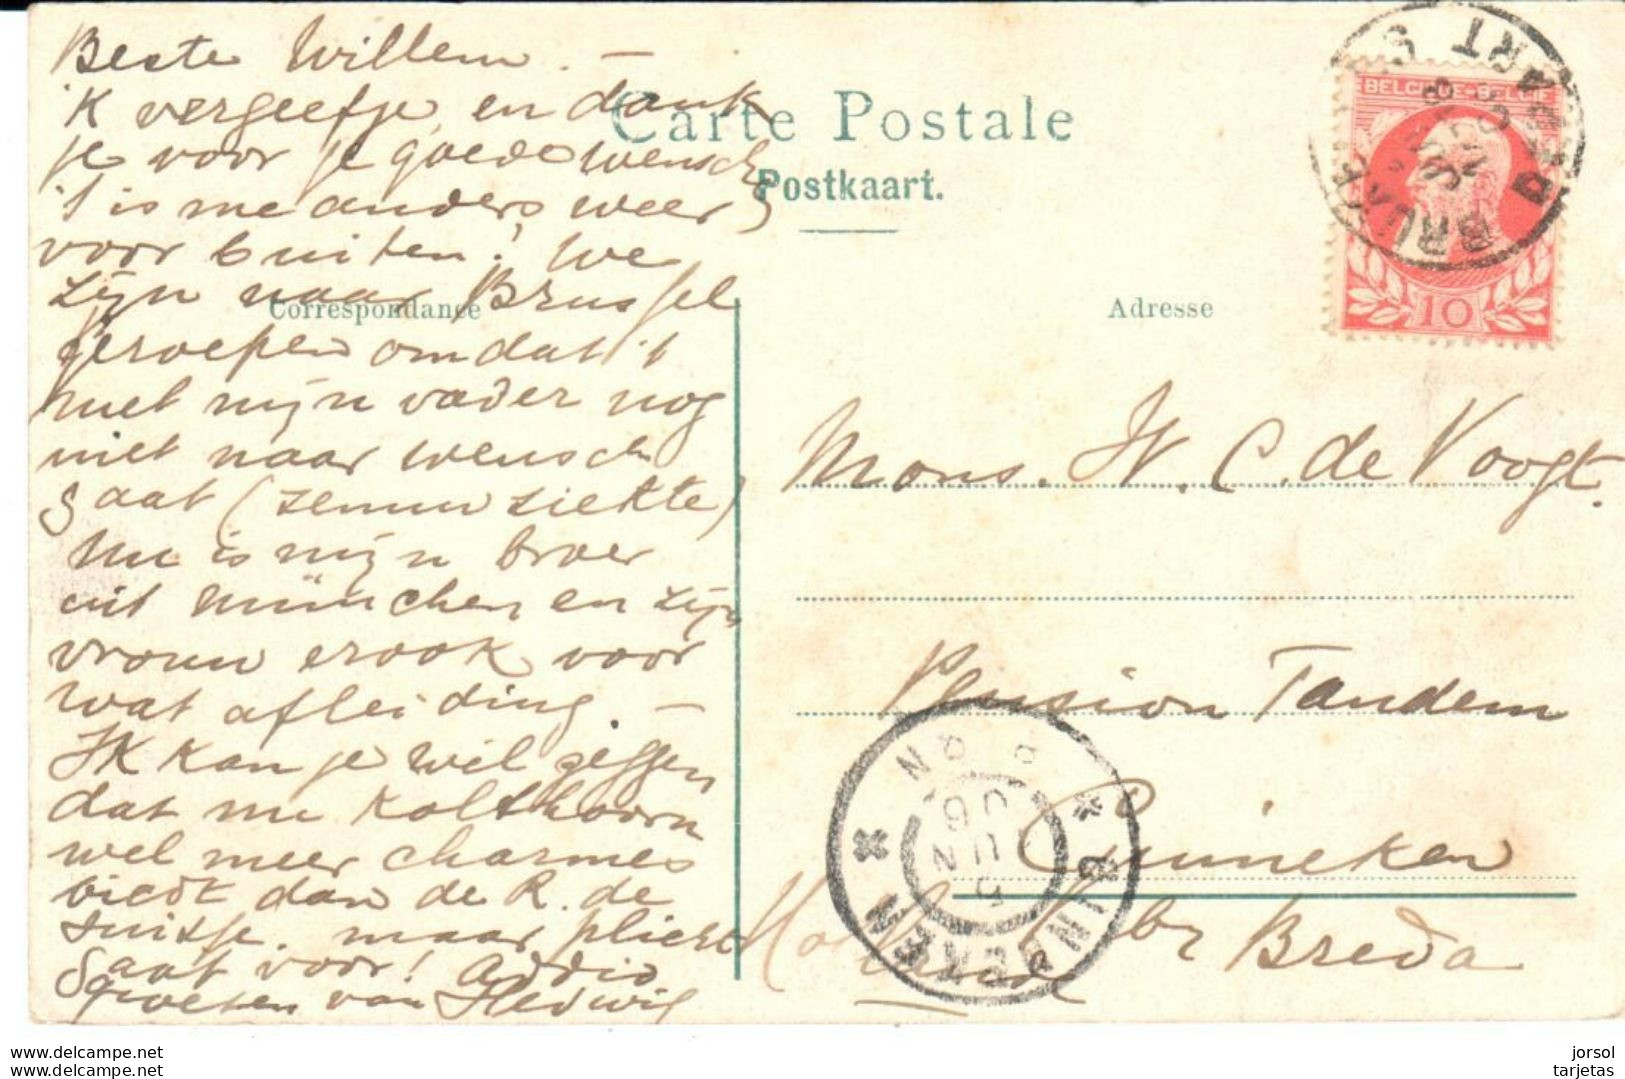 Beste Willem. —
'k vergeef je, en dank
je voor je goede wensch,
't is me anders weer
voor buiten! We
zijn naar Brussel
geroepen omdat 't
met mijn vader nog
niet naar wensch
gaat (zenuwziekte)
Nu is mijn broer
uit München en zijn
vrouw er ook voor
wat afleiding. —
Ik kan je wel zeggen
dat me Kolthoorn
wel meer charmes
biedt dan de R. de
Suisse. maar plicht
gaat voor! Addio
groeten van Hedwig
Carte Postale
Postkaart.
Correspondance
Adresse
BELGIQUE-BELGIE
10
BRUXELLES
DEPART
Mons. W. C. de Voogt.
Pension Tandem
Ginneken
Holland br Breda
GINNEKEN
5 JUN 06
www.delcampe.net
www.delcampe.net
jorsol
tarjetas